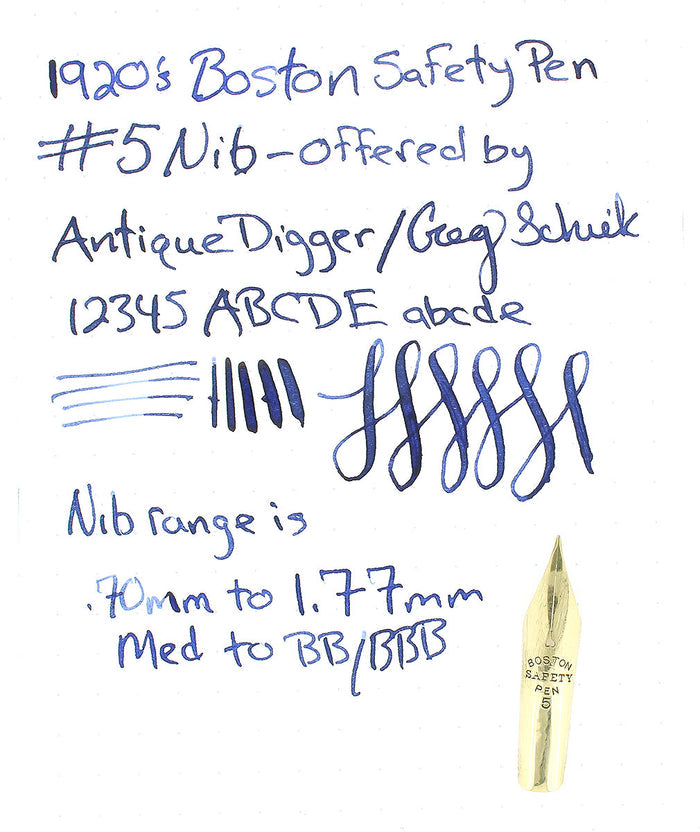 1920's Boston Safety Pen
#5 Nib - offered by
Antique Digger/Greg
12345 ABCDE abcde
Nib range is
.70mm to 1.77mm
Med to BB/BBB
BOSTON
SAFETY
PEN
5